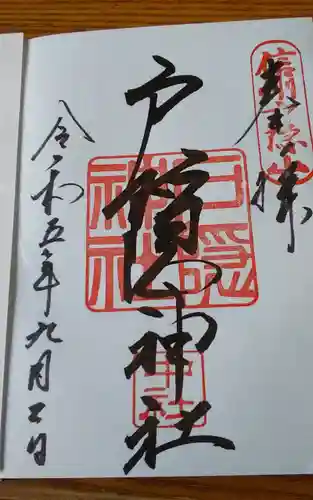 奉拝
信州戸隠山
戸隠神社
戸隠神社
中社
令和五年九月二日